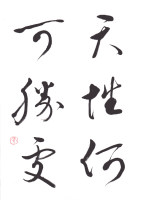 天性何
可勝